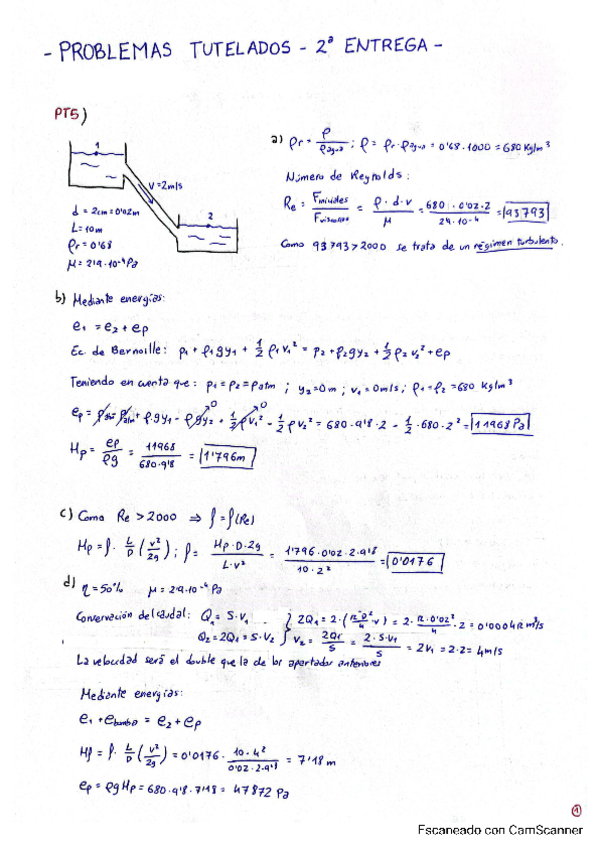 - PROBLEMAS TUTELADOS - 2ª ENTREGA -
PT5)
1
V=2m/s
2
d = 2cm = 0'02m
L = 10m
ρr = 0'68
μ = 2'9·10⁻⁴ Pa
a) ρr = ρ/ρagua ; ρ = ρr·ρagua = 0'68·1000 = 680 Kg/m³
Número de Reynolds:
Re = Finerciales/Fviscosas = ρ·d·v/μ = 680·0'02·2/2'9·10⁻⁴ = 93793
Como 93793 > 2000 se trata de un régimen turbulento.
b) Mediante energías:
e₁ = e₂ + ep
Ec. de Bernoille: p₁ + ρ₁gy₁ + 1/2 ρ₁v₁² = p₂ + ρ₂gy₂ + 1/2 ρ₂v₂² + ep
Teniendo en cuenta que: p₁ = p₂ = patm ; y₂ = 0m ; v₁ = 0m/s ; ρ₁ = ρ₂ = 680 Kg/m³
ep = patm - patm + ρgy₁ - ρgy₂ + 1/2 ρv₁² - 1/2 ρv₂² = 680·9'8·2 - 1/2·680·2² = 11968 Pa
0 0
Hp = ep/ρg = 11968/680·9'8 = 1'796m
c) Como Re > 2000 ⇒ f = f(Re)
Hp = f· L/D (v²/2g) ; f = Hp·D·2g/L·v² = 1'796·0'02·2·9'8/10·2² = 0'0176
d) η = 50% μ = 2'9·10⁻⁴ Pa
Conservación del caudal: Q₁ = S·V₁ } 2Q₁ = 2·(π·D²/4 v) = 2·π·0'02²/4·2 = 0'0004π m³/s
Q₂ = 2Q₁ = S·V₂ } V₂ = 2Q₁/S = 2·S·V₁/S = 2V₁ = 2·2 = 4m/s
La velocidad será el double que la de los apartados anteriores
Mediante energías:
e₁ + ebomba = e₂ + ep
Hf = f· L/D (v²/2g) = 0'0176· 10·4²/0'02·2·9'8 = 7'18 m
ep = ρgHp = 680·9'8·7'18 = 47872 Pa
1
Escaneado con CamScanner